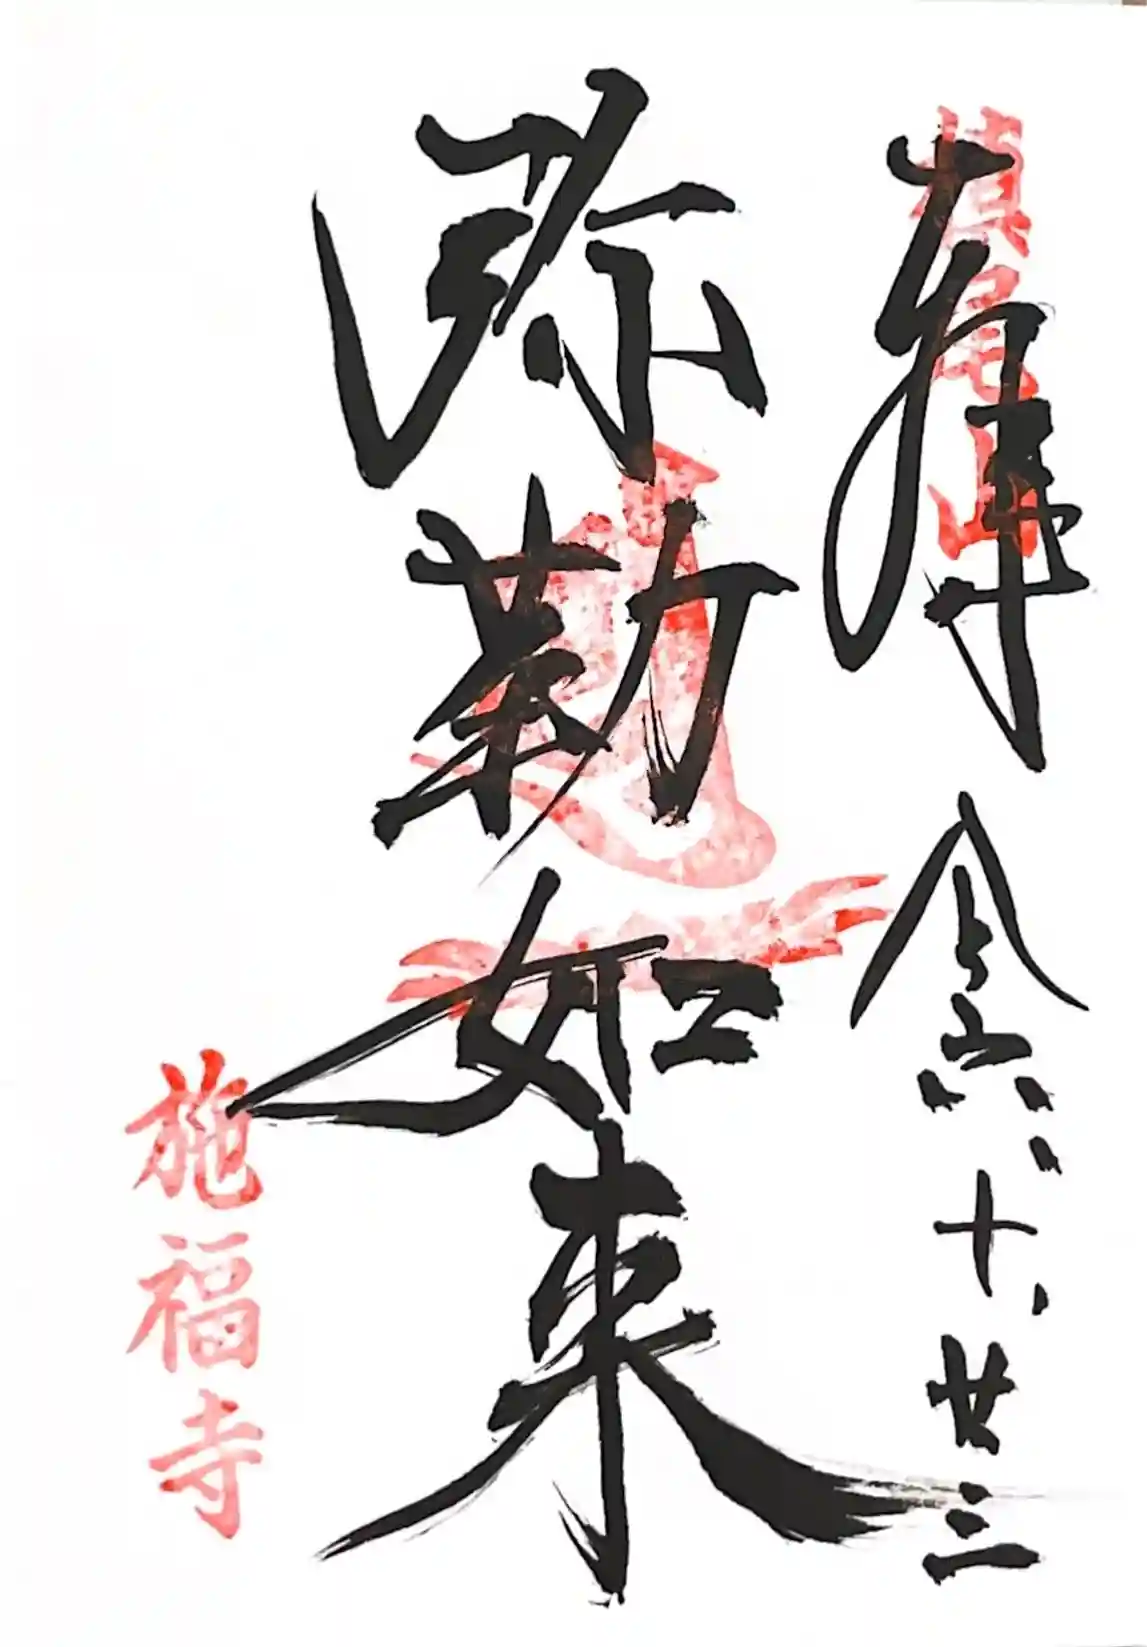 奉拝 令六、十、廿三
槇尾山
弥勒如来
施福寺